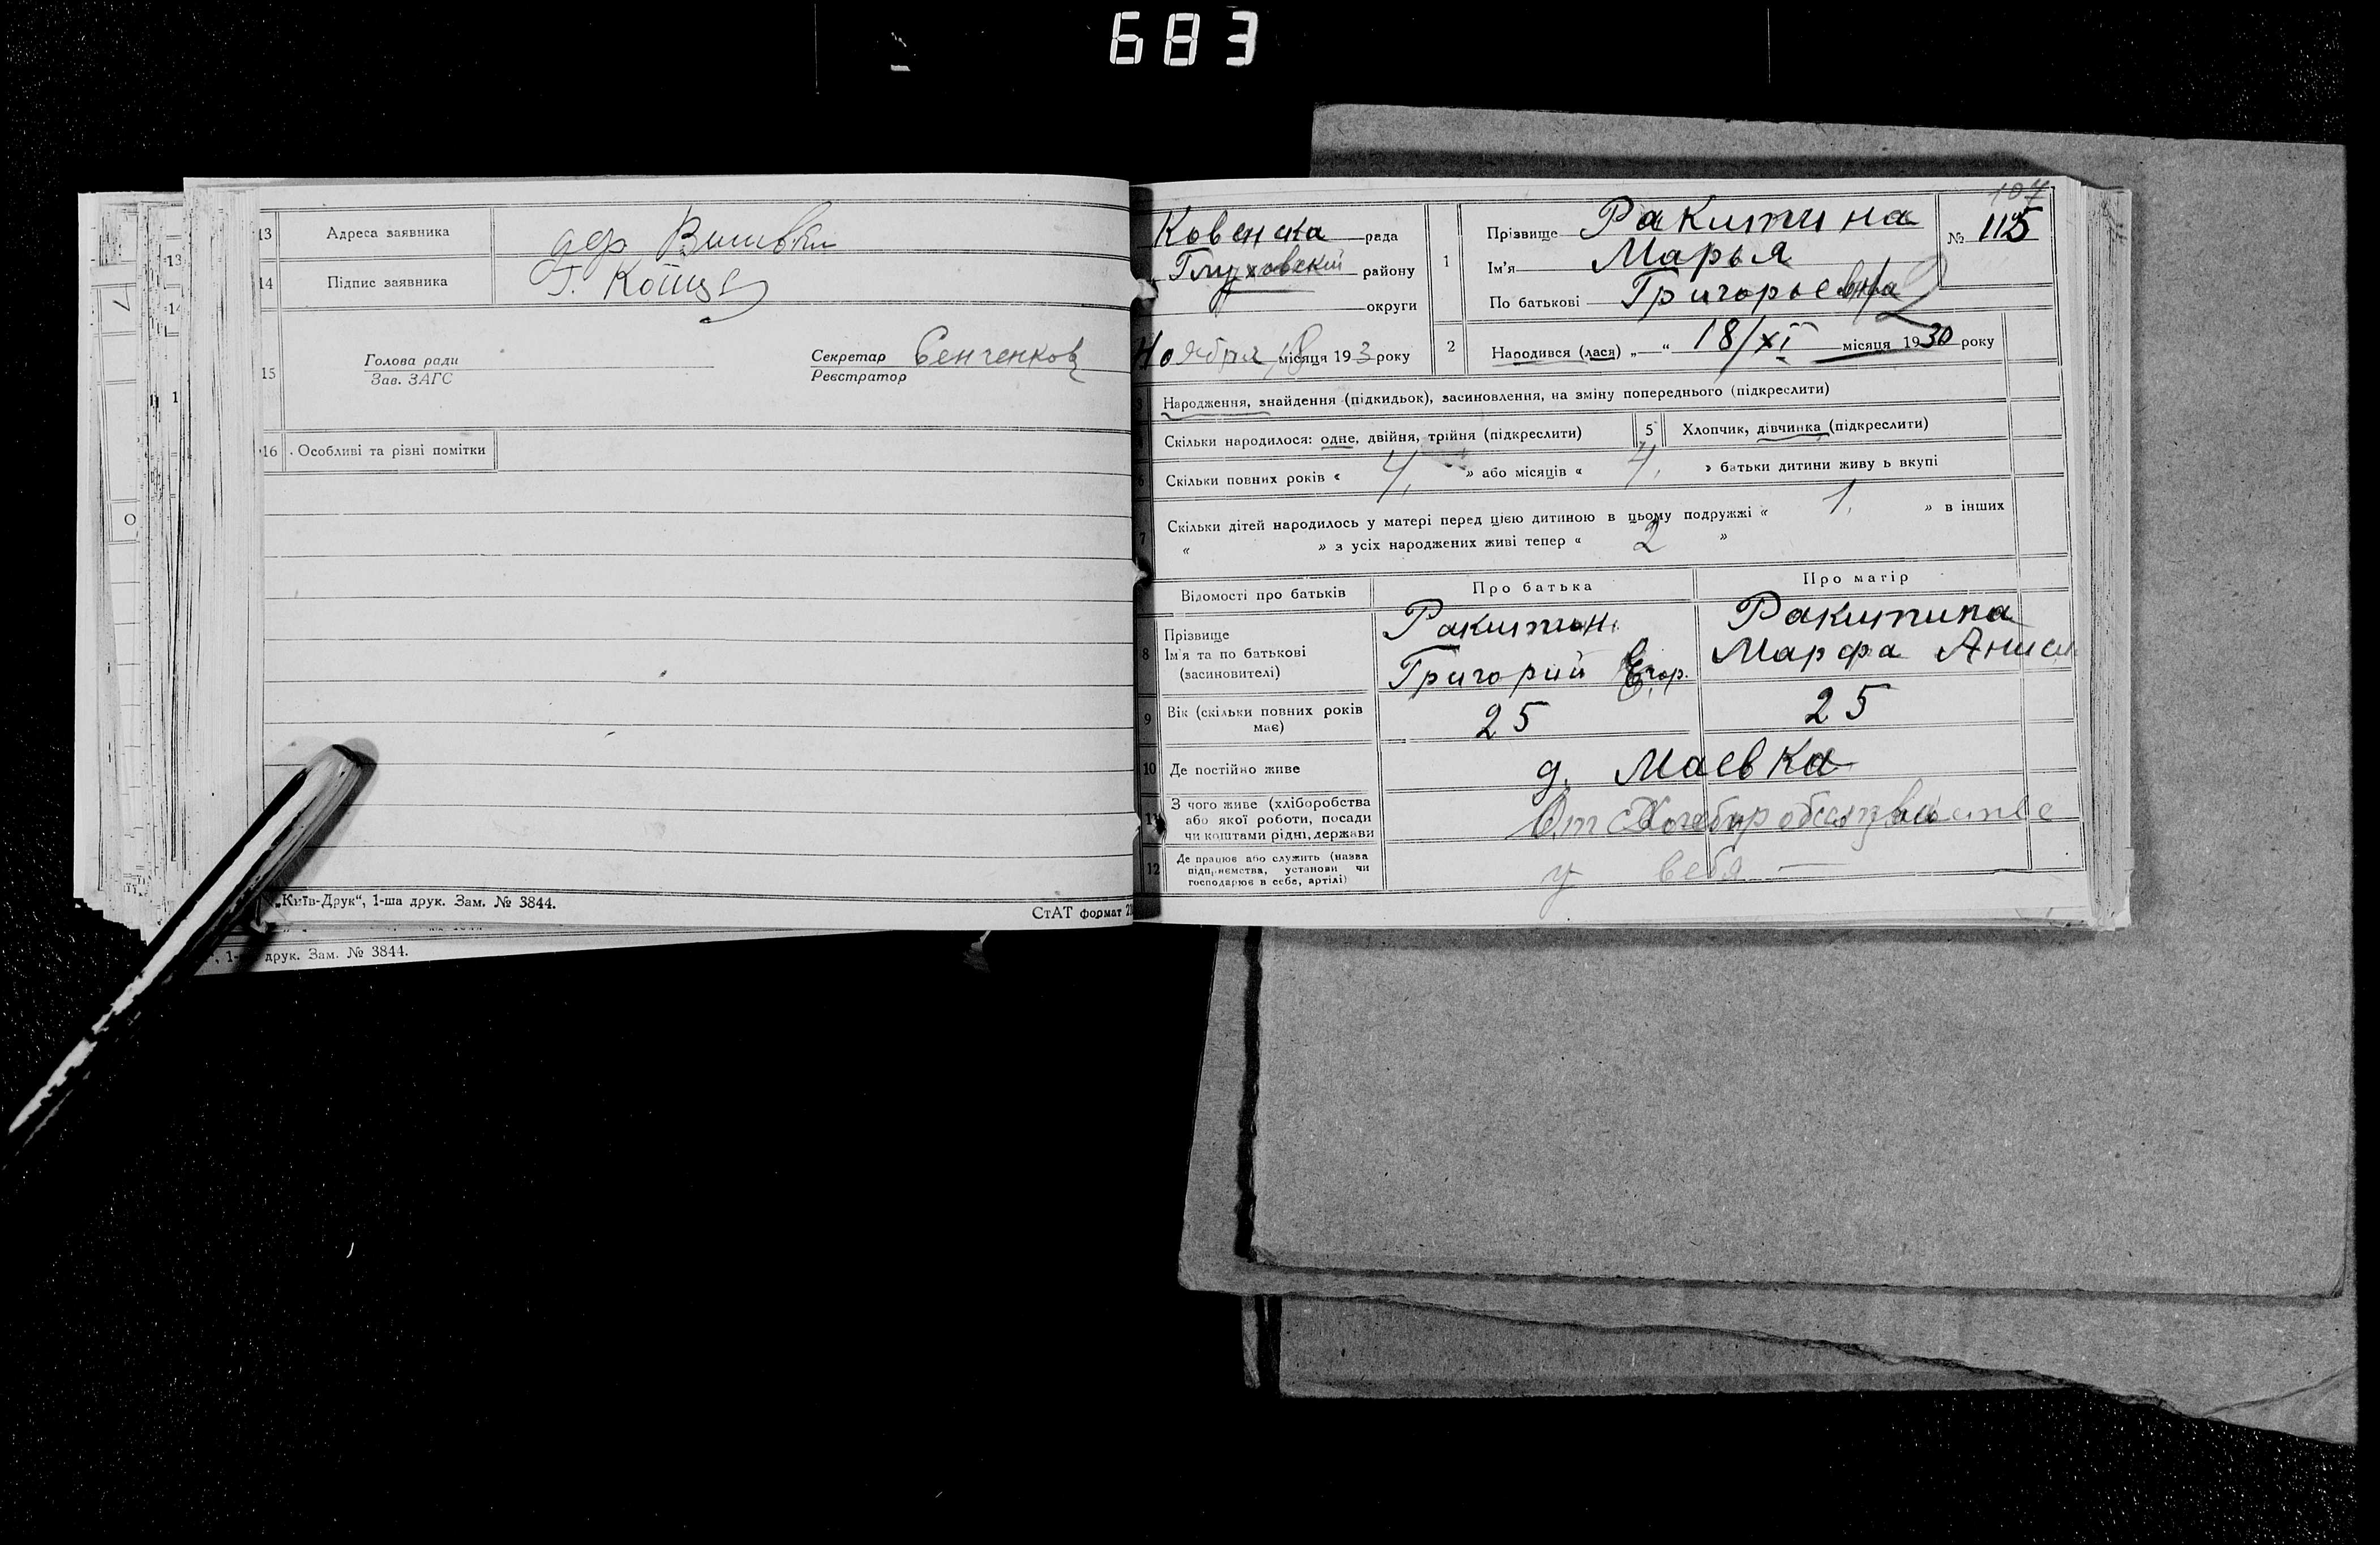 683
13 Адреса заявника дер
14 Підпис заявника Г.
15 Голова ради
Зав. ЗАГС
Секретар Сенченков
Реєстратор
16 Особливі та різні помітки
„Київ-Друк“, 1-ша друк. Зам. № 3844.
СтАТ формат
друк. Зам. № 3844.
107
Ковенска рада
Глуховский району
округи
Ноября 18 місяця 193 року
1 Прізвище Ракитина
Ім'я Марья
По батькові Григорьевна
№ 115
2 Народився (лася) „—“ 18/XI місяця 1930 року
Народження, знайдення (підкидьок), засиновлення, на зміну попереднього (підкреслити)
Скільки народилося: одне, двійня, трійня (підкреслити)
5 Хлопчик, дівчинка (підкреслити)
6 Скільки повних років « 4, » або місяців « 4, » батьки дитини живу ь вкупі
7 Скільки дітей народилось у матері перед цією дитиною в цьому подружжі « 1, » в інших
« » з усіх народжених живі тепер « 2 »
Відомості про батьків
Про батька
Про матір
8 Прізвище
Ім'я та по батькові
(засновителі)
Ракитин
Григорий Егор.
Ракитина
Марфа Анисим
9 Вік (скільки повних років
має)
25
25
10 Де постійно живе
д. Маевка
11 З чого живе (хліборобства
або якої роботи, посади
чи коштами рідні, держави
От
12 Де працює або служить (назва
підприємства, установи чи
господарює в себе, артілі)
у себя —